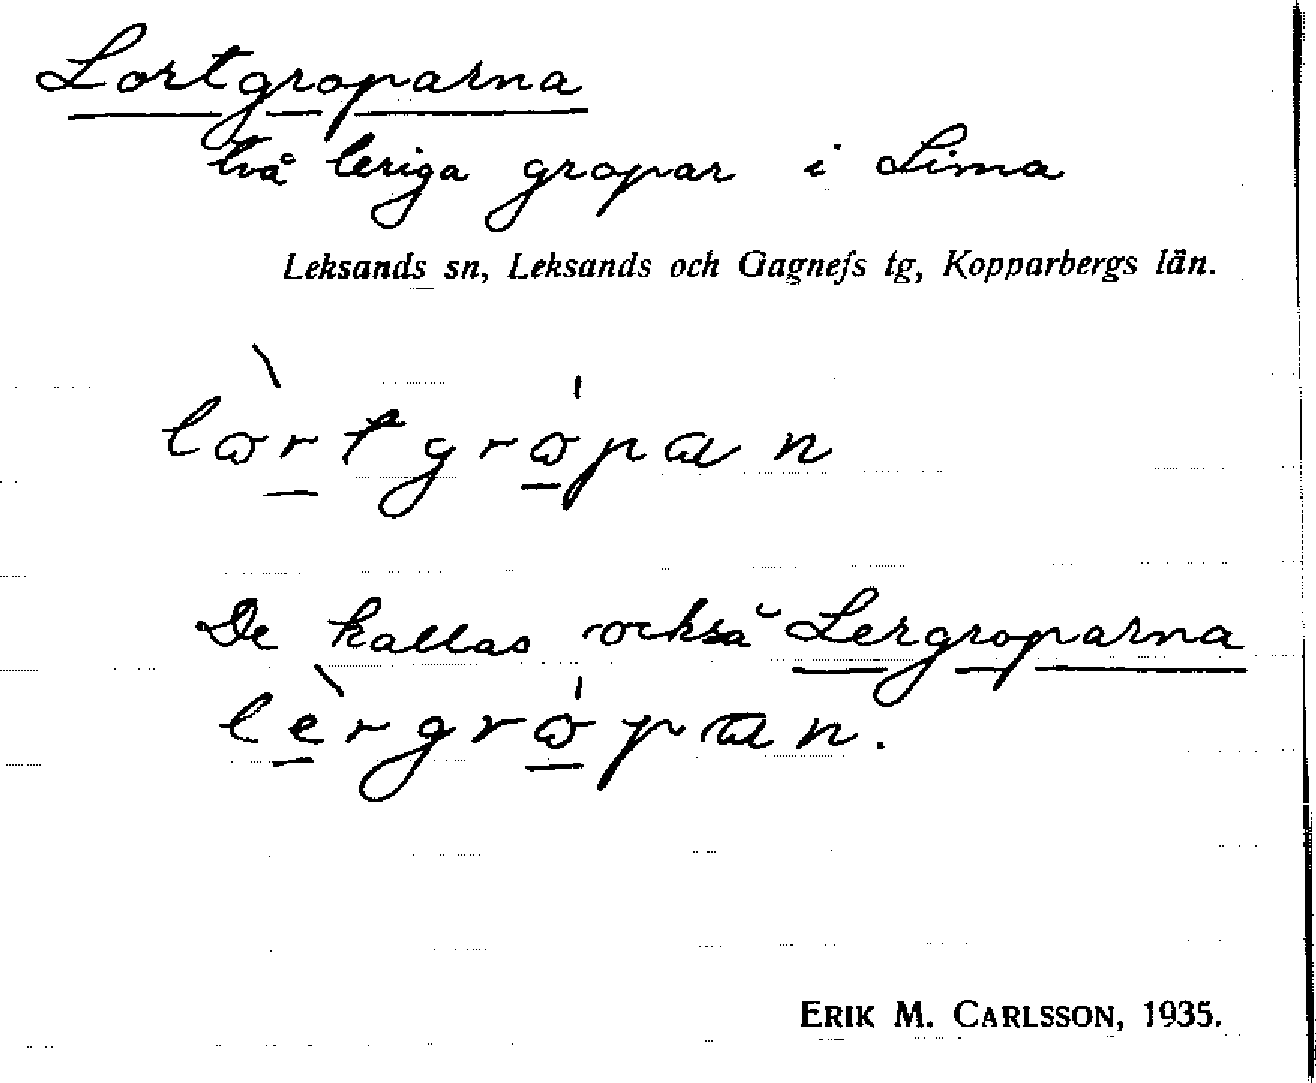 Lortgroparna
två leriga gropar i Lima
Leksands sn, Leksands och Gagnefs tg, Kopparbergs län.
lòrtgròpan
De kallas också Lergroparna
lèrgròpan.
ERIK M. CARLSSON, 1935.